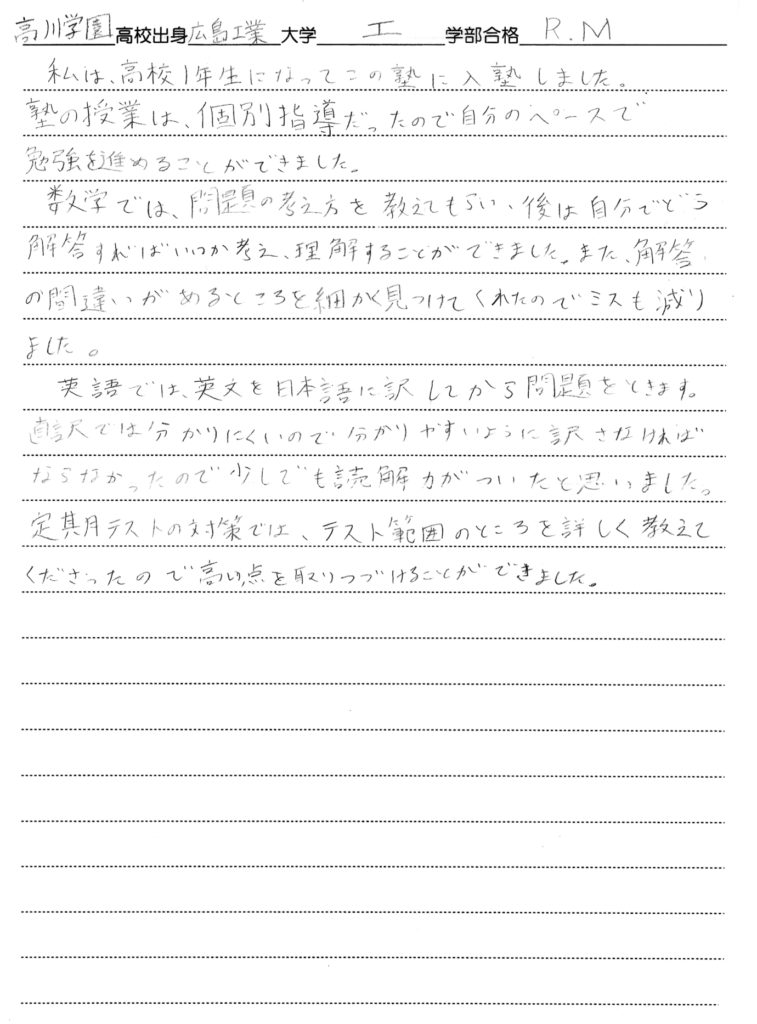 高川学園高校出身広島工業大学 工 学部合格 R.M
私は、高校1年生になってこの塾に入塾しました。
塾の授業は、個別指導だったので自分のペースで
勉強を進めることができました。
数学では、問題の考え方を教えてもらい、後は自分でどう
解答すればいいか考え、理解することができました。また、解答
の間違いがあるところを細かく見つけてくれたのでミスも減り
ました。
英語では、英文を日本語に訳してから問題をときます。
直訳では分かりにくいので分かりやすいように訳さなければ
ならなかったので少しでも読解力がついたと思いました。
定期テストの対策では、テスト範囲のところを詳しく教えて
くださったので高い点を取りつづけることができました。